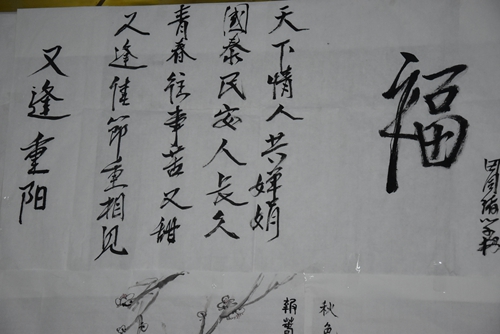 福
天下情人共婵娟
国泰民安人长久
青春往事苦又甜
又逢佳节重相见
又逢重阳
秋色